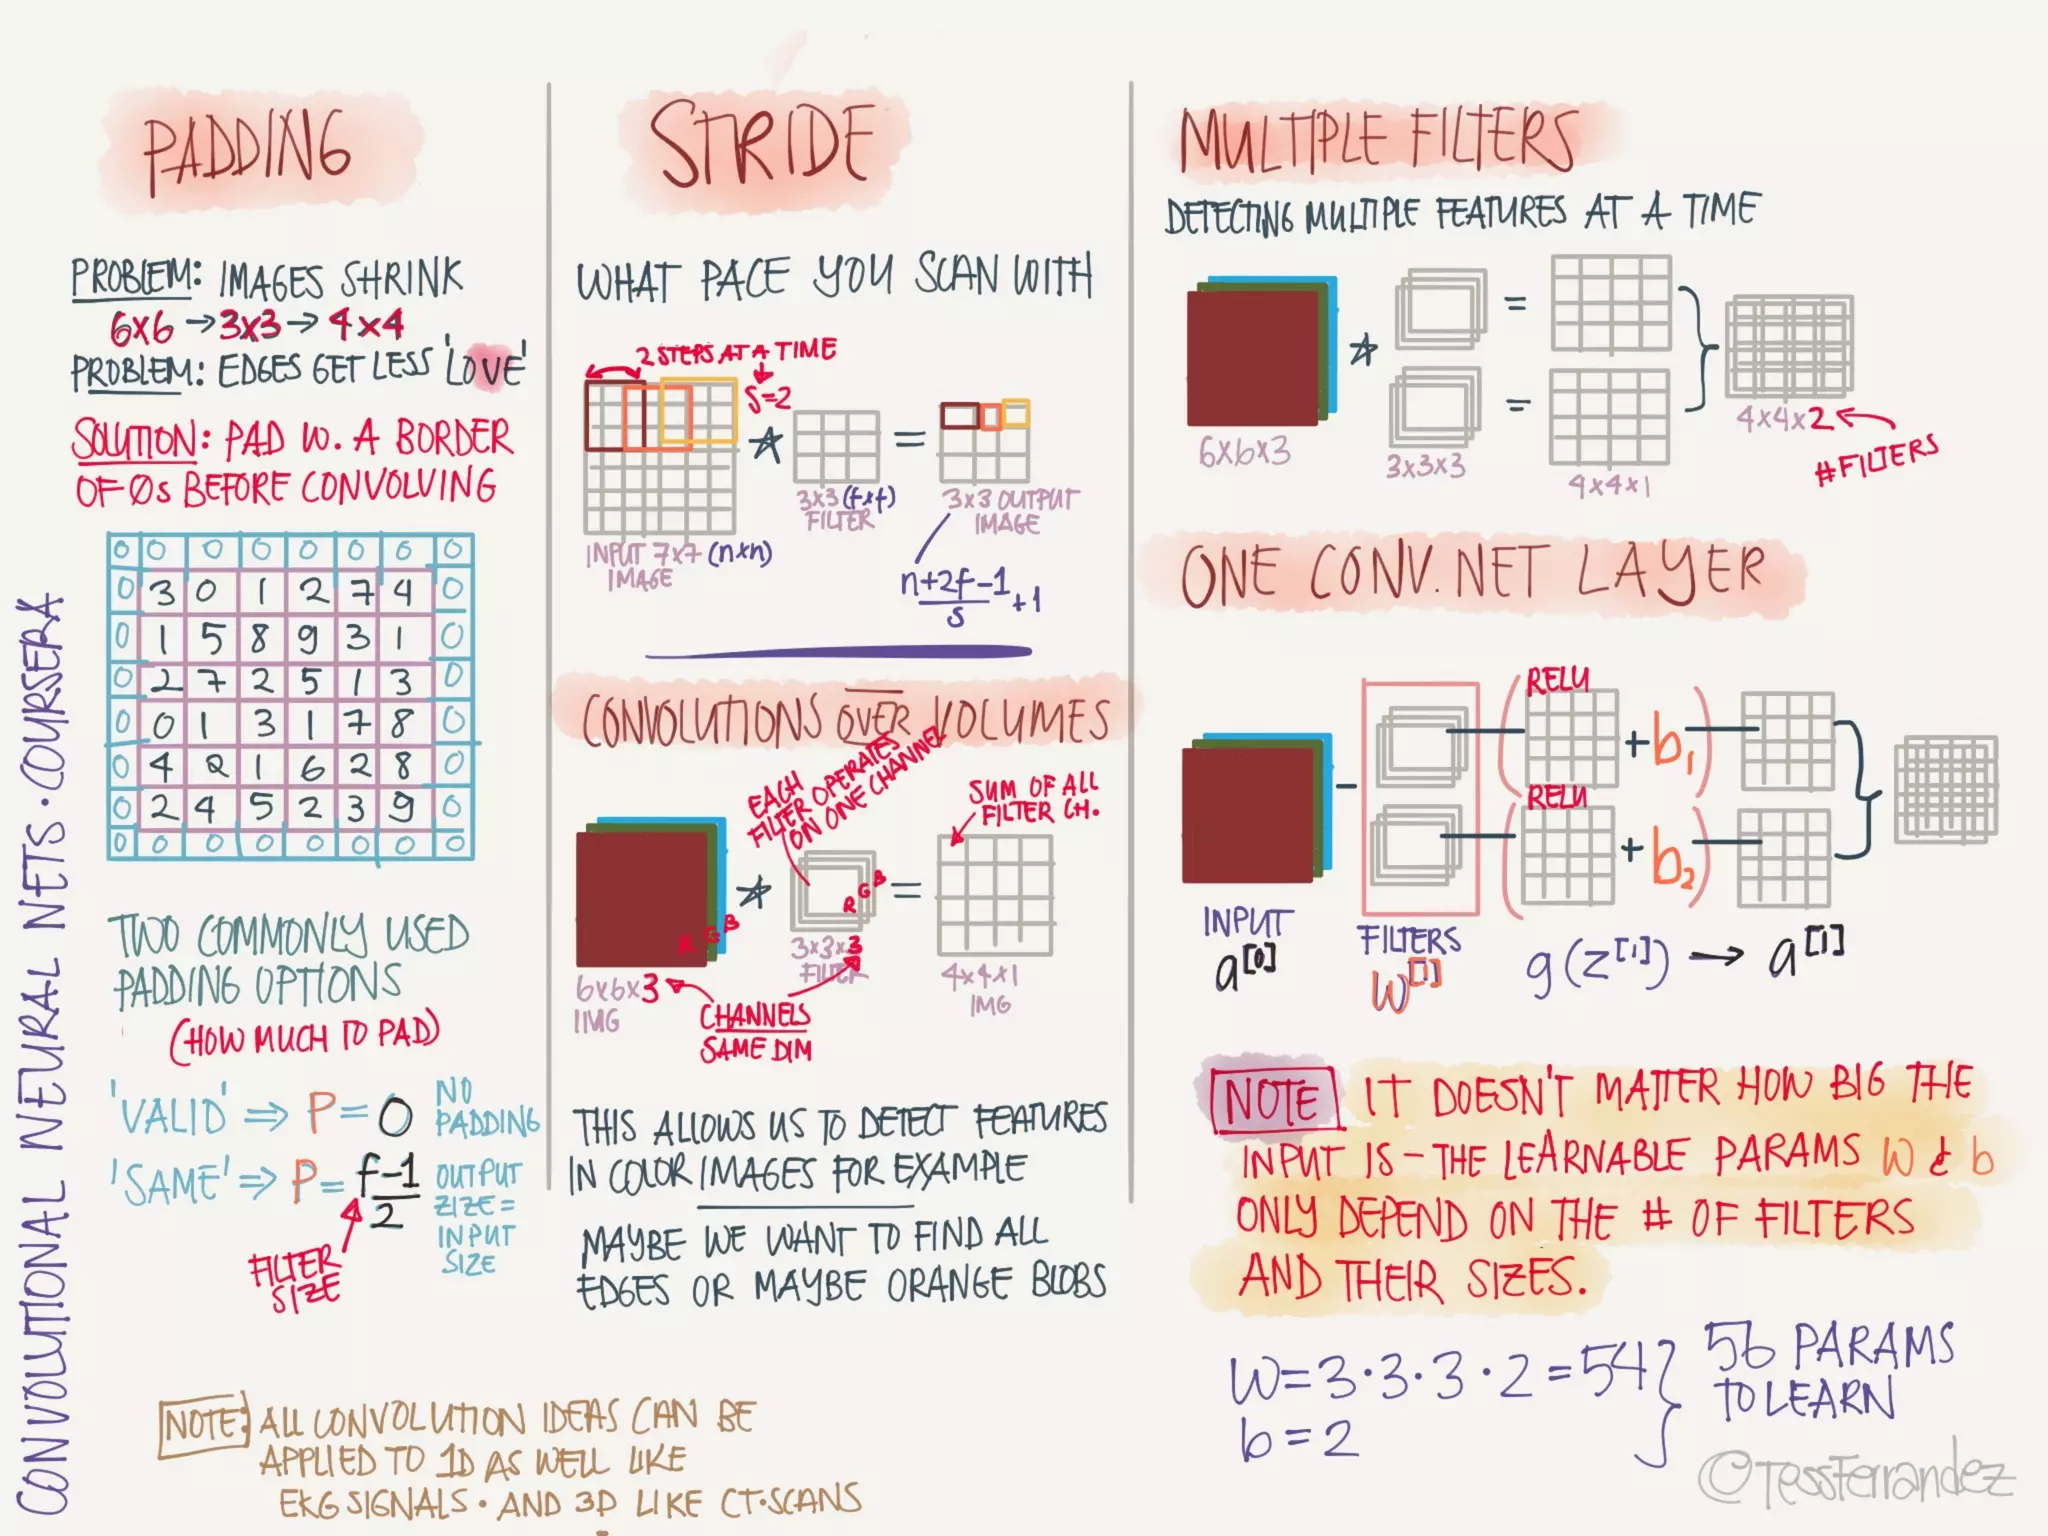 CONVOLUTIONAL NEURAL NETS · COURSERA
PADDING
PROBLEM: IMAGES SHRINK
6x6 → 3x3 → 4x4
PROBLEM: EDGES GET LESS 'LOVE'
SOLUTION: PAD W. A BORDER
OF 0s BEFORE CONVOLVING
0 0 0 0 0 0 0 0
0 3 0 1 2 7 4 0
0 1 5 8 9 3 1 0
0 2 7 2 5 1 3 0
0 0 1 3 1 7 8 0
0 4 2 1 6 2 8 0
0 2 4 5 2 3 9 0
0 0 0 0 0 0 0 0
TWO COMMONLY USED
PADDING OPTIONS
(HOW MUCH TO PAD)
'VALID' ⇒ P = 0
NO
PADDING
'SAME' ⇒ P = f-1
2
OUTPUT
ZIZE =
INPUT
SIZE
FILTER
SIZE
NOTE: ALL CONVOLUTION IDEAS CAN BE
APPLIED TO 1D AS WELL LIKE
EKG SIGNALS · AND 3D LIKE CT·SCANS
STRIDE
WHAT PACE YOU SCAN WITH
2 STEPS AT A TIME
S=2
* =
INPUT 7x7 (nxn)
IMAGE
3x3 (fxf)
FILTER
3x3 OUTPUT
IMAGE
n+2f-1
s
+1
CONVOLUTIONS OVER VOLUMES
EACH
FILTER OPERATES
ON ONE CHANNEL
SUM OF ALL
FILTER CH.
R G B
* =
R G B
6x6x3
IMG
3x3x3
FILTER
4x4x1
IMG
CHANNELS
SAME DIM
THIS ALLOWS US TO DETECT FEATURES
IN COLOR IMAGES FOR EXAMPLE
MAYBE WE WANT TO FIND ALL
EDGES OR MAYBE ORANGE BLOBS
MULTIPLE FILTERS
DETECTING MULTIPLE FEATURES AT A TIME
* =
=
6x6x3
3x3x3
4x4x1
4x4x2
# FILTERS
ONE CONV. NET LAYER
RELU
+ b1
RELU
+ b2
INPUT
a[0]
FILTERS
W[1]
g(z[1]) → a[1]
NOTE IT DOESN'T MATTER HOW BIG THE
INPUT IS - THE LEARNABLE PARAMS W & b
ONLY DEPEND ON THE # OF FILTERS
AND THEIR SIZES.
W = 3·3·3·2 = 54
b = 2
56 PARAMS
TO LEARN
©TessFerrandez